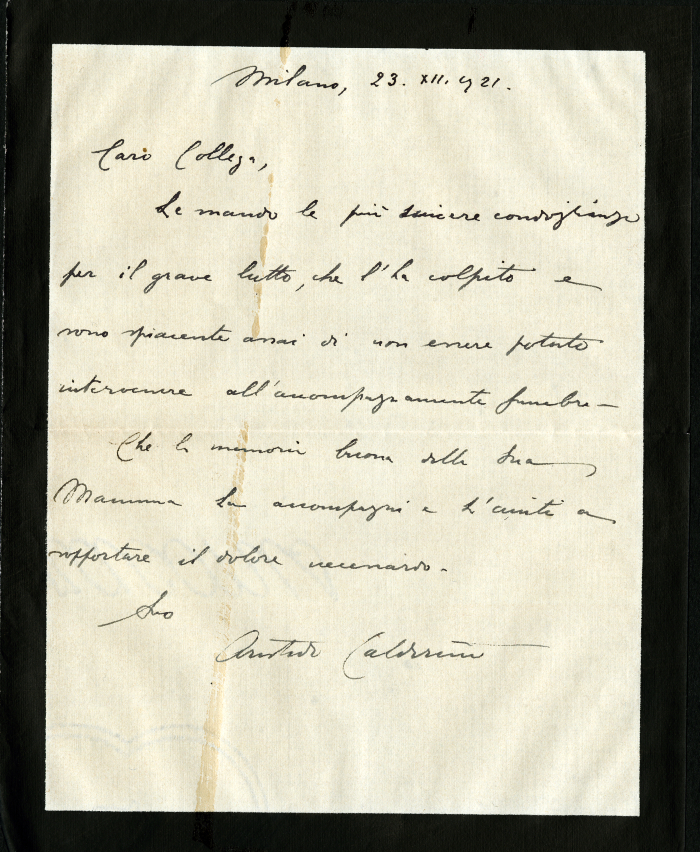 Milano, 23. XII. 1921.
Caro Collega,
Le mando le più sincere condoglianze
per il grave lutto, che l'ha colpito e
sono spiacente assai di non essere potuto
intervenire all'accompagnamento funebre -
Che la memoria buona della Sua
Mamma La accompagni e L'aiuti a
sopportare il dolore necessario.
Suo
Aristide Calderini